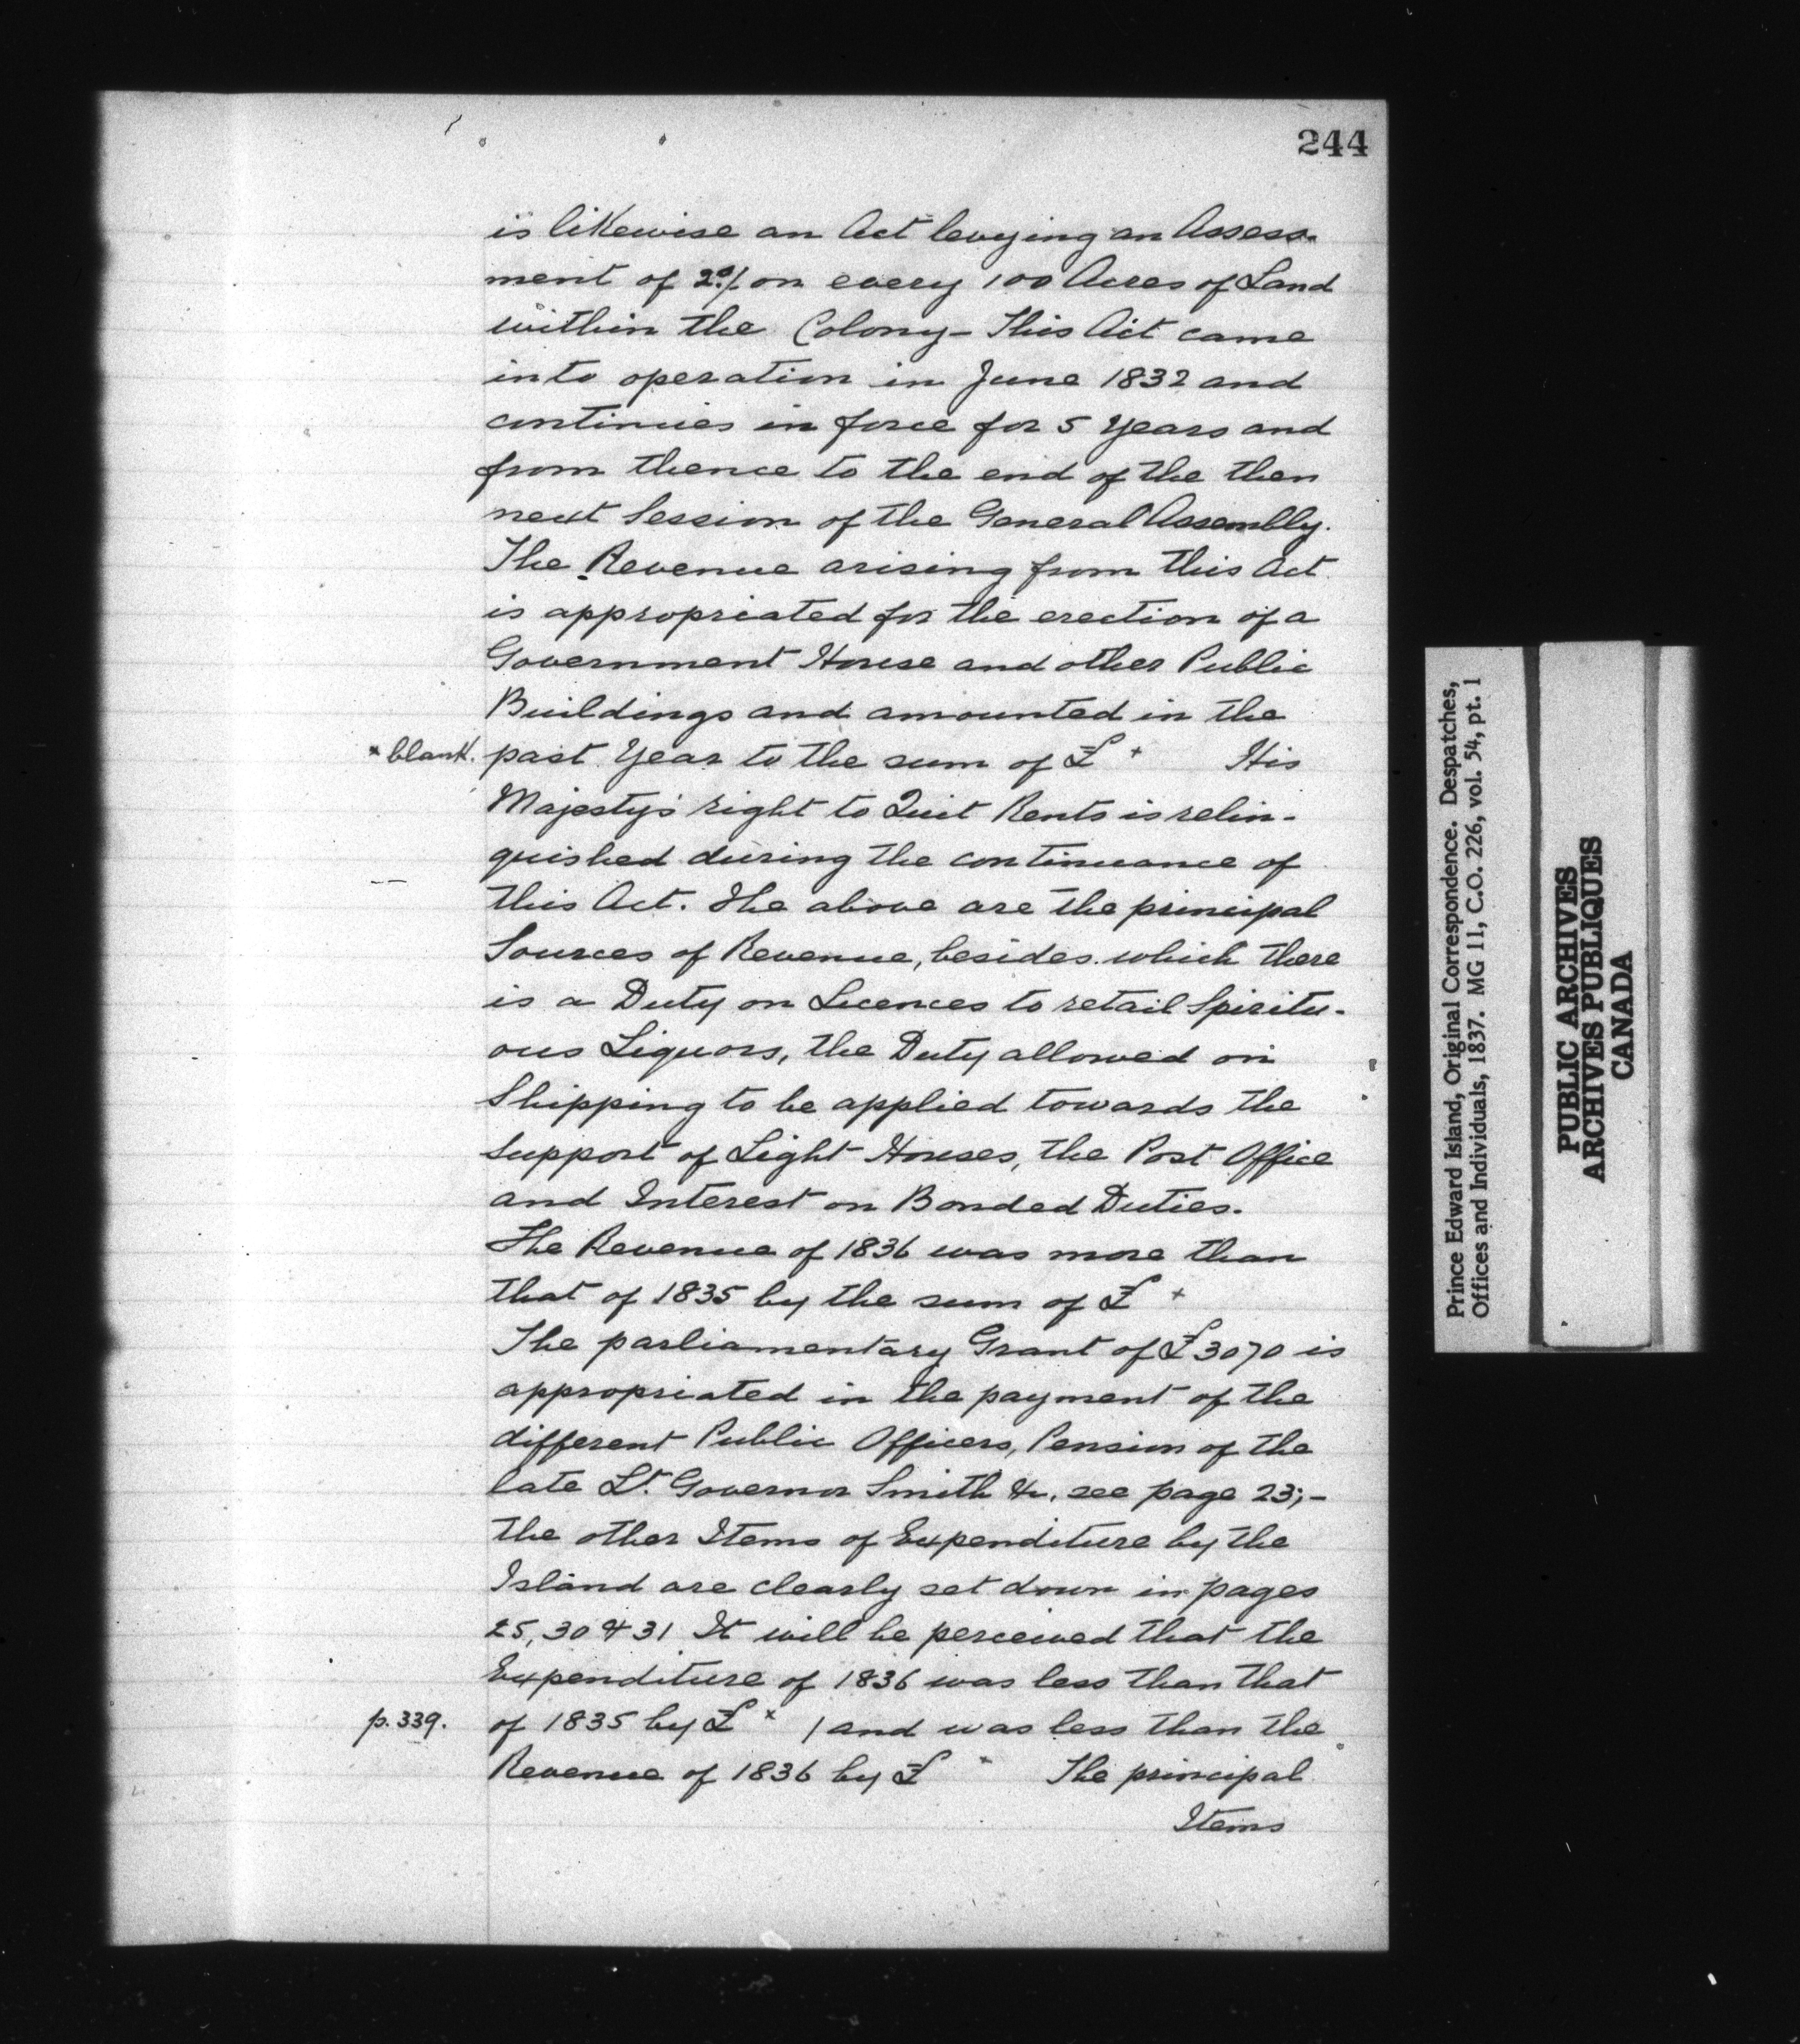 244
is likewise an Act levying an Assess-
ment of 2%. on every 100 Acres of Land
within the Colony - This Act came
into operation in June 1832 and
continues in force for 5 Years and
from thence to the end of the then
next Session of the General Assembly.
The Revenue arising from this Act
is appropriated for the erection of a
Government House and other Public
Buildings and amounted in the
× blank. past Year to the sum of £ + His
Majesty's right to Quit Rents is relin-
quished during the continuance of
this Act. The above are the principal
Sources of Revenue, besides which there
is a Duty on Licences to retail Spiritu-
ous Liquors, the Duty allowed on
Shipping to be applied towards the
support of Light Houses, the Post Office
and Interest on Bonded Duties.
The Revenue of 1836 was more than
that of 1835 by the sum of £ +
The parliamentary Grant of £3070 is
appropriated in the payment of the
different Public Officers, Pension of the
late Lt. Governor Smith &c. see page 23;-
the other Items of Expenditure by the
Island are clearly set down in pages
25, 30 & 31 It will be perceived that the
Expenditure of 1836 was less than that
p. 339. of 1835 by £ × / and was less than the
Revenue of 1836 by £ × The principal
Items
Prince Edward Island, Original Correspondence. Despatches,
Offices and Individuals, 1837. MG 11, C.O. 226, vol. 54, pt. 1
PUBLIC ARCHIVES
ARCHIVES PUBLIQUES
CANADA